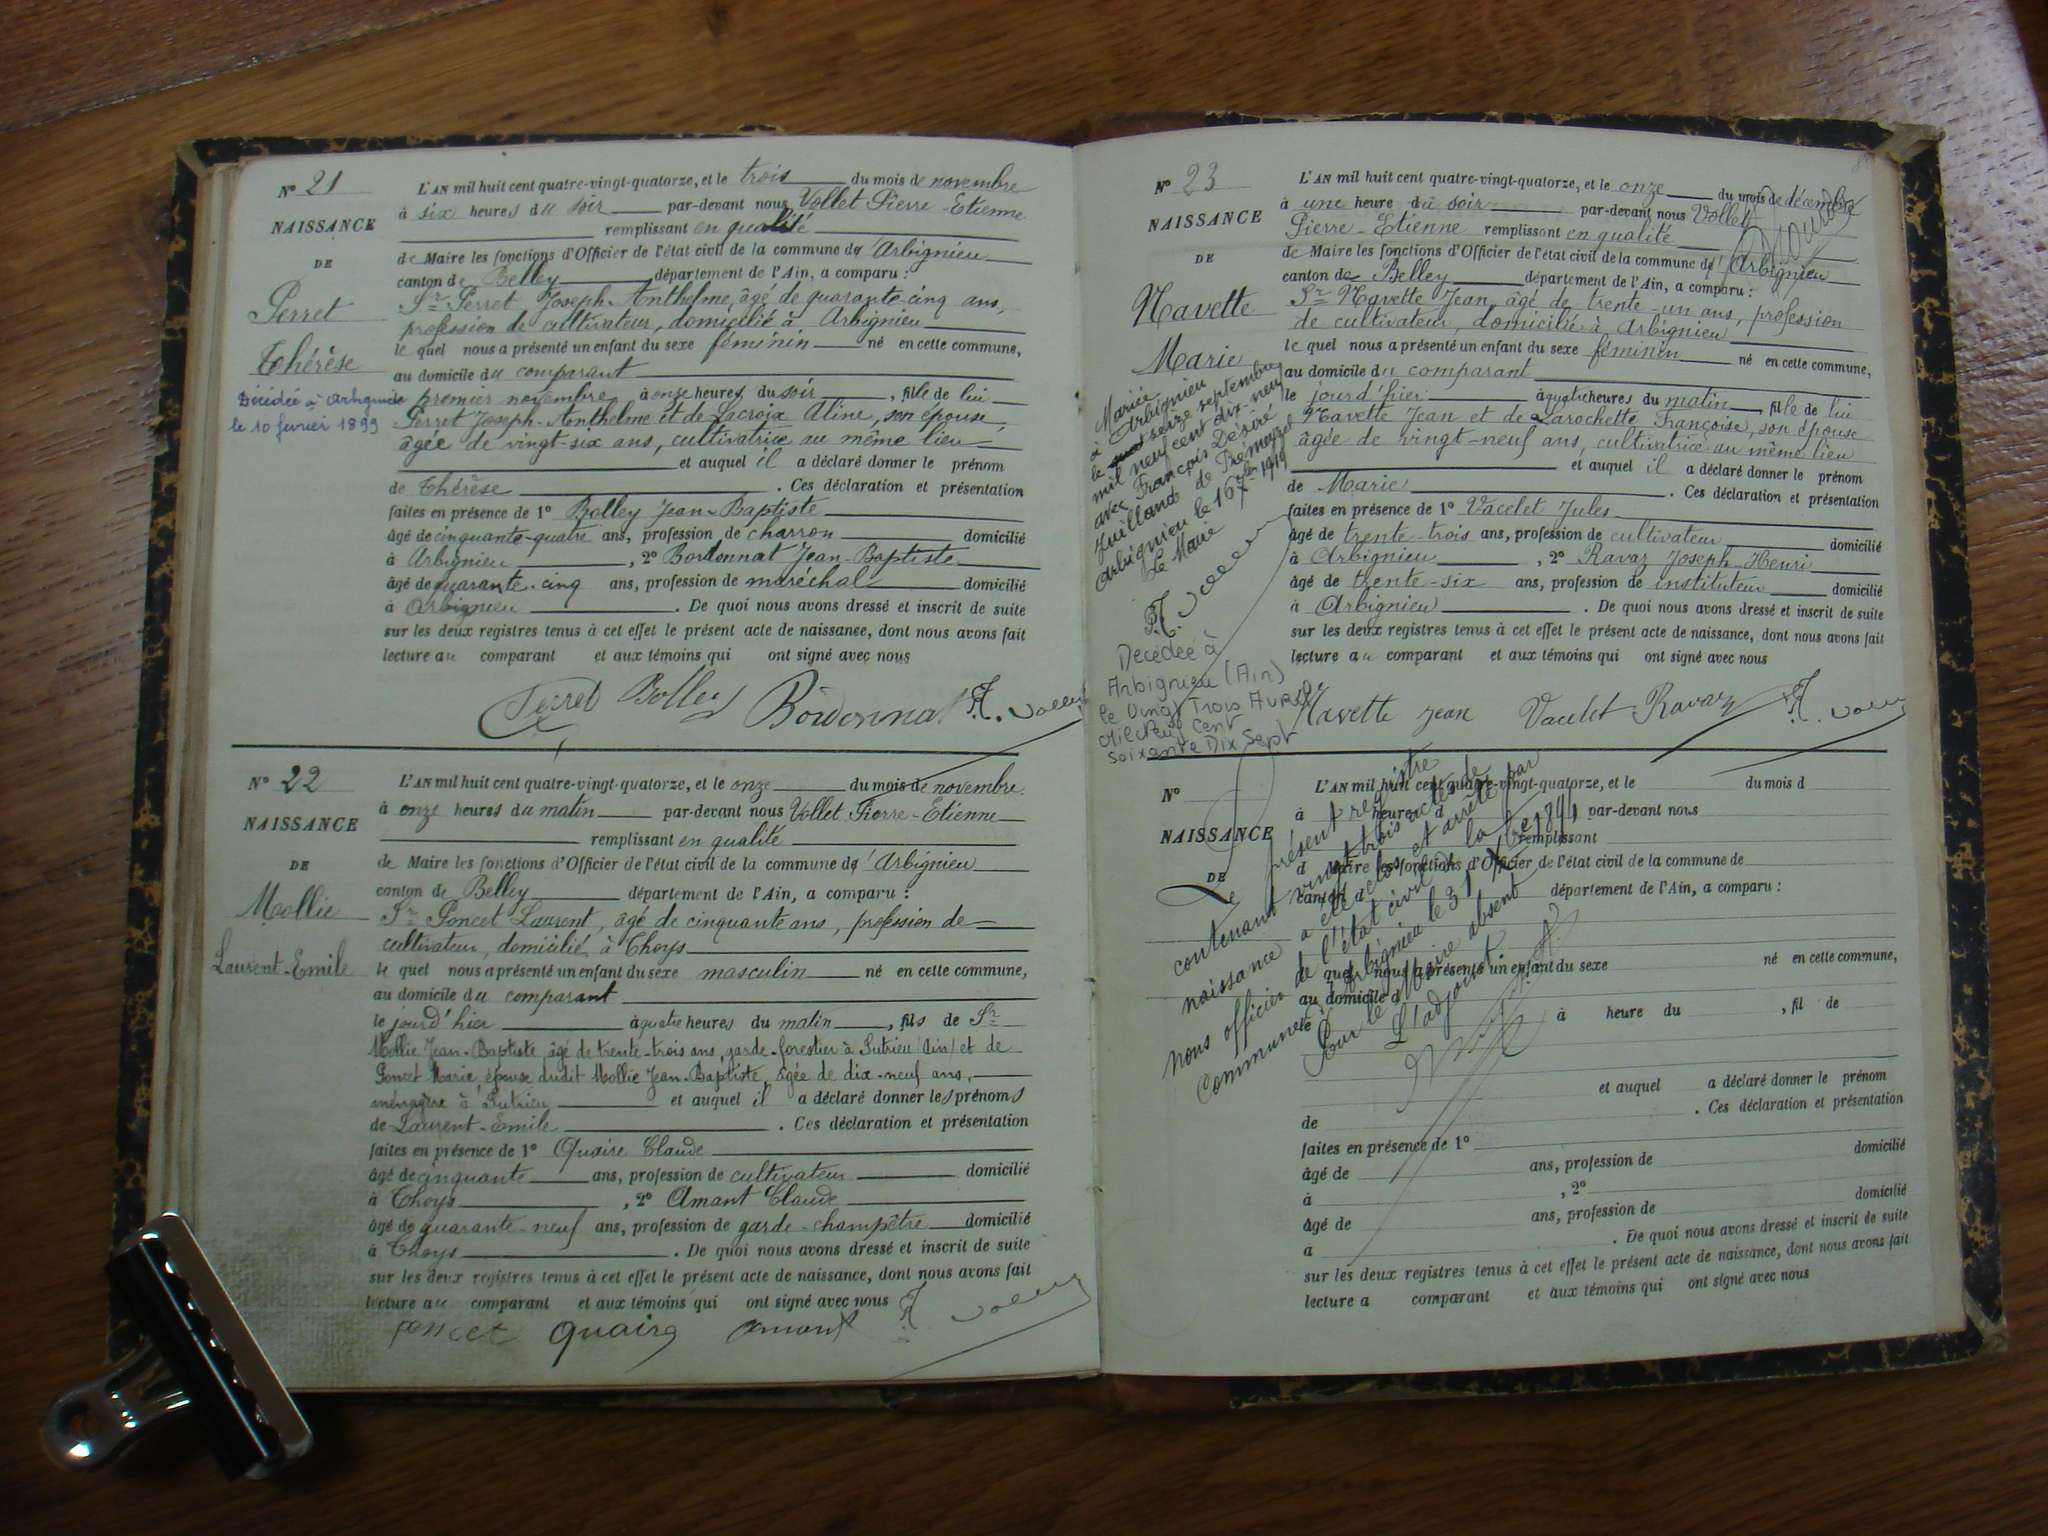 N° 21
NAISSANCE
DE
Perret
Thérèse
Décédée à Arbignieu
le 10 février 1899
L'AN mil huit cent quatre-vingt-quatorze, et le trois du mois de novembre
à six heures du soir par-devant nous Vollet Pierre-Etienne
remplissant en qualité
de Maire les fonctions d'Officier de l'état civil de la commune d'Arbignieu
canton de Belley département de l'Ain, a comparu :
Sr Perret Joseph-Anthelme, âgé de quarante-cinq ans,
profession de cultivateur, domicilié à Arbignieu
lequel nous a présenté un enfant du sexe féminin né en cette commune,
au domicile du comparant
le premier novembre à onze heures du soir, fille de lui
Perret Joseph-Anthelme et de Lacroix Aline, son épouse,
âgée de vingt-six ans, cultivatrice au même lieu
et auquel il a déclaré donner le prénom
de Thérèse. Ces déclaration et présentation
faites en présence de 1° Bolley Jean-Baptiste
âgé de cinquante-quatre ans, profession de charron domicilié
à Arbignieu, 2° Bordonnat Jean-Baptiste
âgé de quarante-cinq ans, profession de maréchal domicilié
à Arbignieu. De quoi nous avons dressé et inscrit de suite
sur les deux registres tenus à cet effet le présent acte de naissance, dont nous avons fait
lecture au comparant et aux témoins qui ont signé avec nous
Perret Bolley Bordonnat
N° 22
NAISSANCE
DE
Mollie
Laurent-Emile
L'AN mil huit cent quatre-vingt-quatorze, et le onze du mois de novembre
à onze heures du matin par-devant nous Vollet Pierre-Etienne
remplissant en qualité
de Maire les fonctions d'Officier de l'état civil de la commune d'Arbignieu
canton de Belley département de l'Ain, a comparu :
Sr Poncet Laurent, âgé de cinquante ans, profession de
cultivateur, domicilié à Thoys
lequel nous a présenté un enfant du sexe masculin né en cette commune,
au domicile du comparant
le jourd'hier à quatre heures du matin, fils de Sr
Mollie Jean-Baptiste, âgé de trente-trois ans, garde-forestier à Sutrieu (Ain) et de
Poncet Marie, épouse dudit Mollie Jean-Baptiste, âgée de dix-neuf ans,
ménagère à Sutrieu et auquel il a déclaré donner les prénoms
de Laurent-Emile. Ces déclaration et présentation
faites en présence de 1° Quaire Claude
âgé de cinquante ans, profession de cultivateur domicilié
à Thoys, 2° Amant Claude
âgé de quarante-neuf ans, profession de garde-champêtre domicilié
à Thoys. De quoi nous avons dressé et inscrit de suite
sur les deux registres tenus à cet effet le présent acte de naissance, dont nous avons fait
lecture au comparant et aux témoins qui ont signé avec nous
poncet quaire amant
N° 23
NAISSANCE
DE
Navette
Marie
Mariée
à Arbignieu
le seize septembre
mil neuf cent dix-neuf
avec François Désiré
Juilland de Prémeyzel
Arbignieu le 16 7bre 1919
Le Maire
Décédée à
Arbignieu (Ain)
le Vingt Trois Avril
Mil Neuf Cent
Soixante Dix Sept
L'AN mil huit cent quatre-vingt-quatorze, et le onze du mois de décembre
à une heure du soir par-devant nous Vollet
Pierre-Etienne remplissant en qualité
de Maire les fonctions d'Officier de l'état civil de la commune d'Arbignieu
canton de Belley département de l'Ain, a comparu :
Sr Navette Jean, âgé de trente-un ans, profession
de cultivateur, domicilié à Arbignieu
lequel nous a présenté un enfant du sexe féminin né en cette commune,
au domicile du comparant
le jourd'hier à quatre heures du matin, fille de lui
Navette Jean et de Larochette Françoise, son épouse
âgée de vingt-neuf ans, cultivatrice au même lieu
et auquel il a déclaré donner le prénom
de Marie. Ces déclaration et présentation
faites en présence de 1° Vacelet Jules
âgé de trente-trois ans, profession de cultivateur domicilié
à Arbignieu, 2° Ravaz Joseph-Henri
âgé de trente-six ans, profession de instituteur domicilié
à Arbignieu. De quoi nous avons dressé et inscrit de suite
sur les deux registres tenus à cet effet le présent acte de naissance, dont nous avons fait
lecture au comparant et aux témoins qui ont signé avec nous
Navette Jean Vacelet Ravaz
N°
NAISSANCE
DE
L'AN mil huit cent quatre-vingt-quatorze, et le du mois d
à heure d par-devant nous
remplissant
d Maire les fonctions d'Officier de l'état civil de la commune de
canton d département de l'Ain, a comparu :
le quel nous a présenté un enfant du sexe né en cette commune,
au domicile d
le à heure du , fil de
et auquel a déclaré donner le prénom
de . Ces déclaration et présentation
faites en présence de 1° domicilié
âgé de ans, profession de
à , 2°
âgé de ans, profession de domicilié
à . De quoi nous avons dressé et inscrit de suite
sur les deux registres tenus à cet effet le présent acte de naissance, dont nous avons fait
lecture a comparant et aux témoins qui ont signé avec nous
Le présent registre
contenant vingt trois actes de
naissance a été clos et arrêté par
nous officier de l'état civil de la
commune d'Arbignieu le 31 Xbre 1894
Pour le Maire absent
L'adjoint